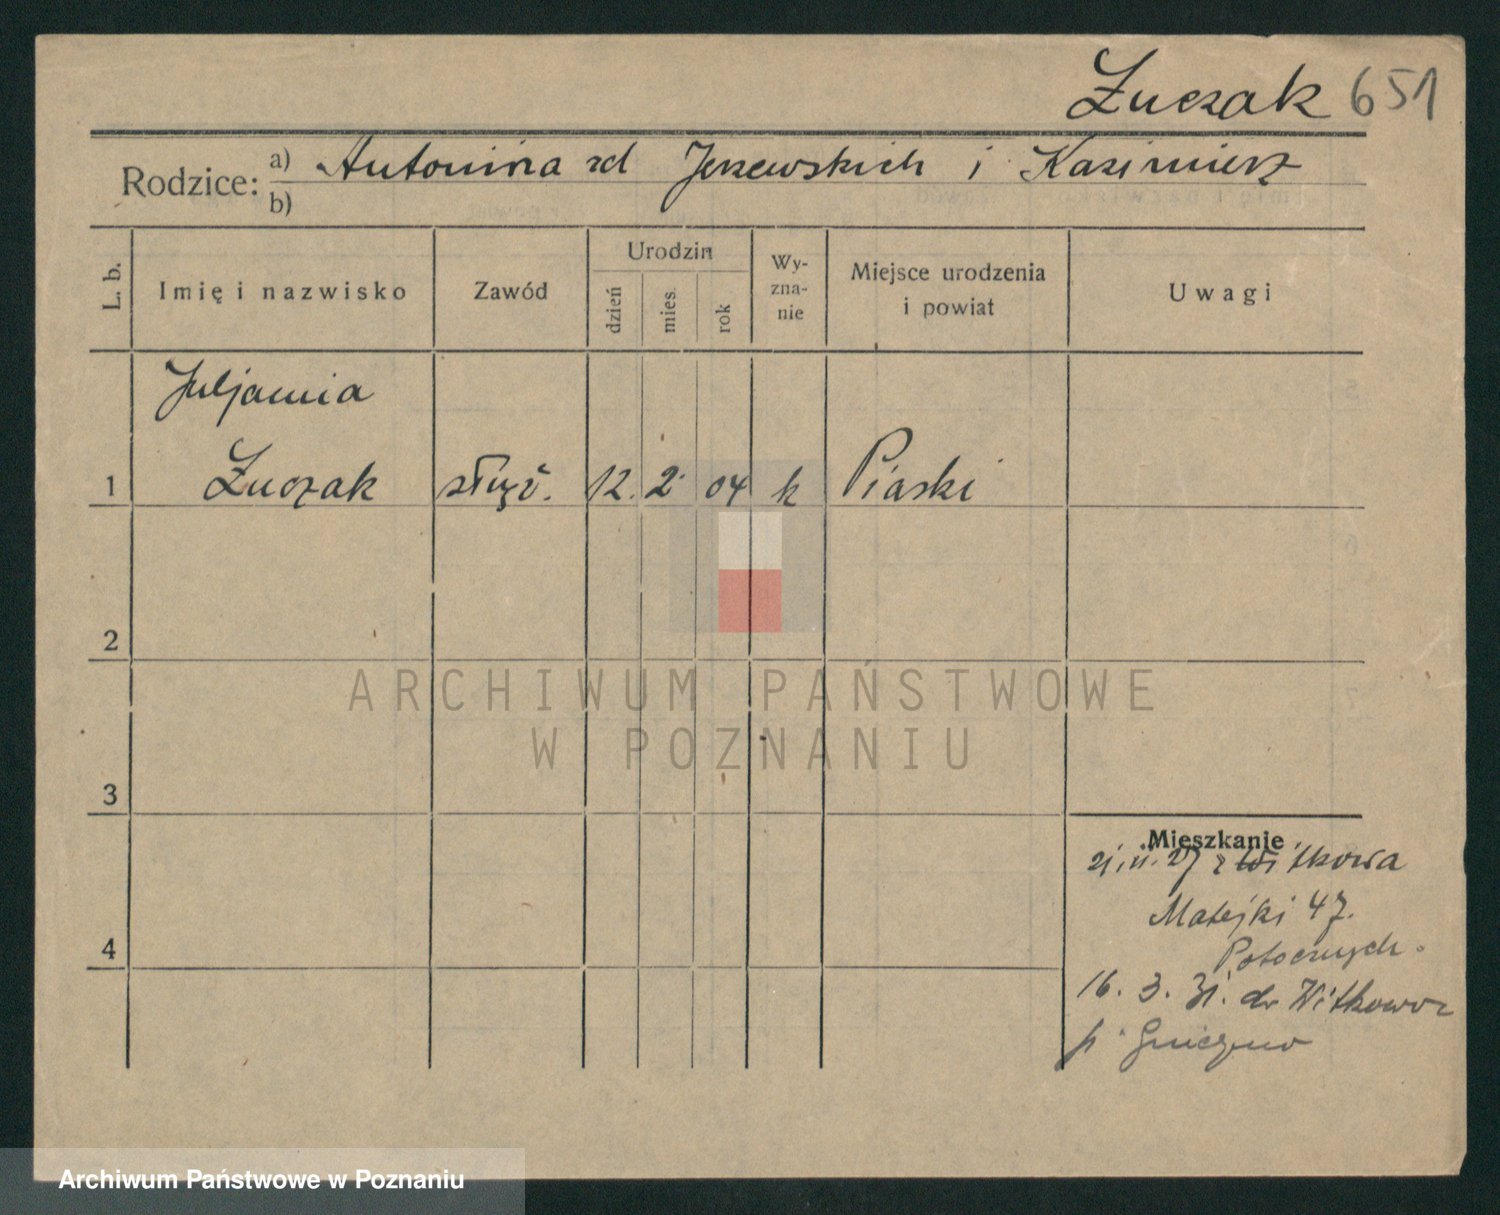 Żuczak 651
Rodzice: a) Antonina zd Jerzewskich i Kazimierz
b)
L. b.
Imię i nazwisko
Zawód
Urodzin
dzień
mies.
rok
Wy-
zna-
nie
Miejsce urodzenia
i powiat
Uwagi
Juljanna
1 Żuczak służ. 12. 2. 04 k Piaski
2
3
4
ARCHIWUM PAŃSTWOWE
W POZNANIU
Mieszkanie
21.11.27 z Witkowa
Matejki 47.
16. 3. 31. do Witkowa
p. Gniezno
Archiwum Państwowe w Poznaniu